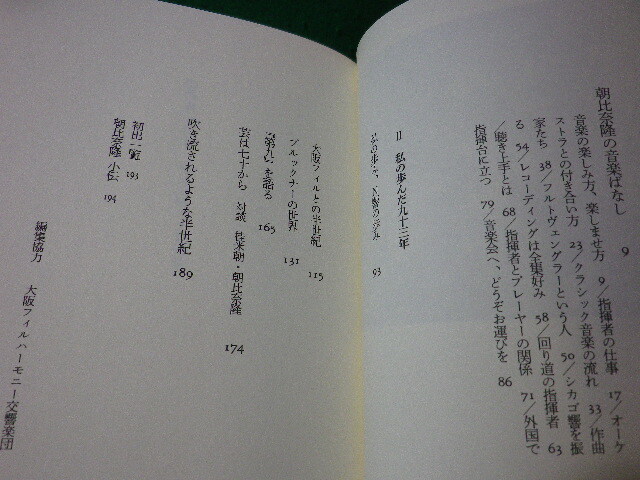 朝比奈隆の音楽ばなし 9
音楽の楽しみ方、楽しませ方 9/指揮者の仕事 17/オーケ
ストラとの付き合い方 23/クラシック音楽の流れ 33/作曲
家たち 38/フルトヴェングラーという人 50/シカゴ響を振
る 54/レコーディングは全集好み 58/回り道の指揮者 63
/聴き上手とは 68/指揮者とプレーヤーの関係 71/外国で
指揮台に立つ 79/音楽会へ、どうぞお運びを 86
II 私の歩んだ九十三年
93
大阪フィルとの半世紀 115
ブルックナーの世界 131
『第九』を語る 165
芸は七十から 対談 桂米朝・朝比奈隆 174
吹き流されるような半世紀 189
初出一覧 193
朝比奈隆 小伝 194
編集協力 大阪フィルハーモニー交響楽団